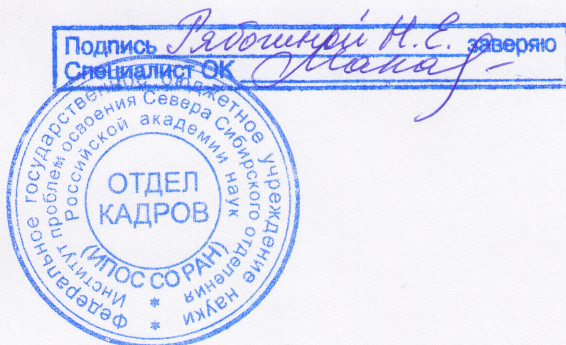 Подпись Рябогиной Н.Е. заверяю
Специалист ОК
Федеральное государственное бюджетное учреждение науки
Институт проблем освоения Севера Сибирского отделения
Российской академии наук
(ИПОС СО РАН)
ОТДЕЛ
КАДРОВ